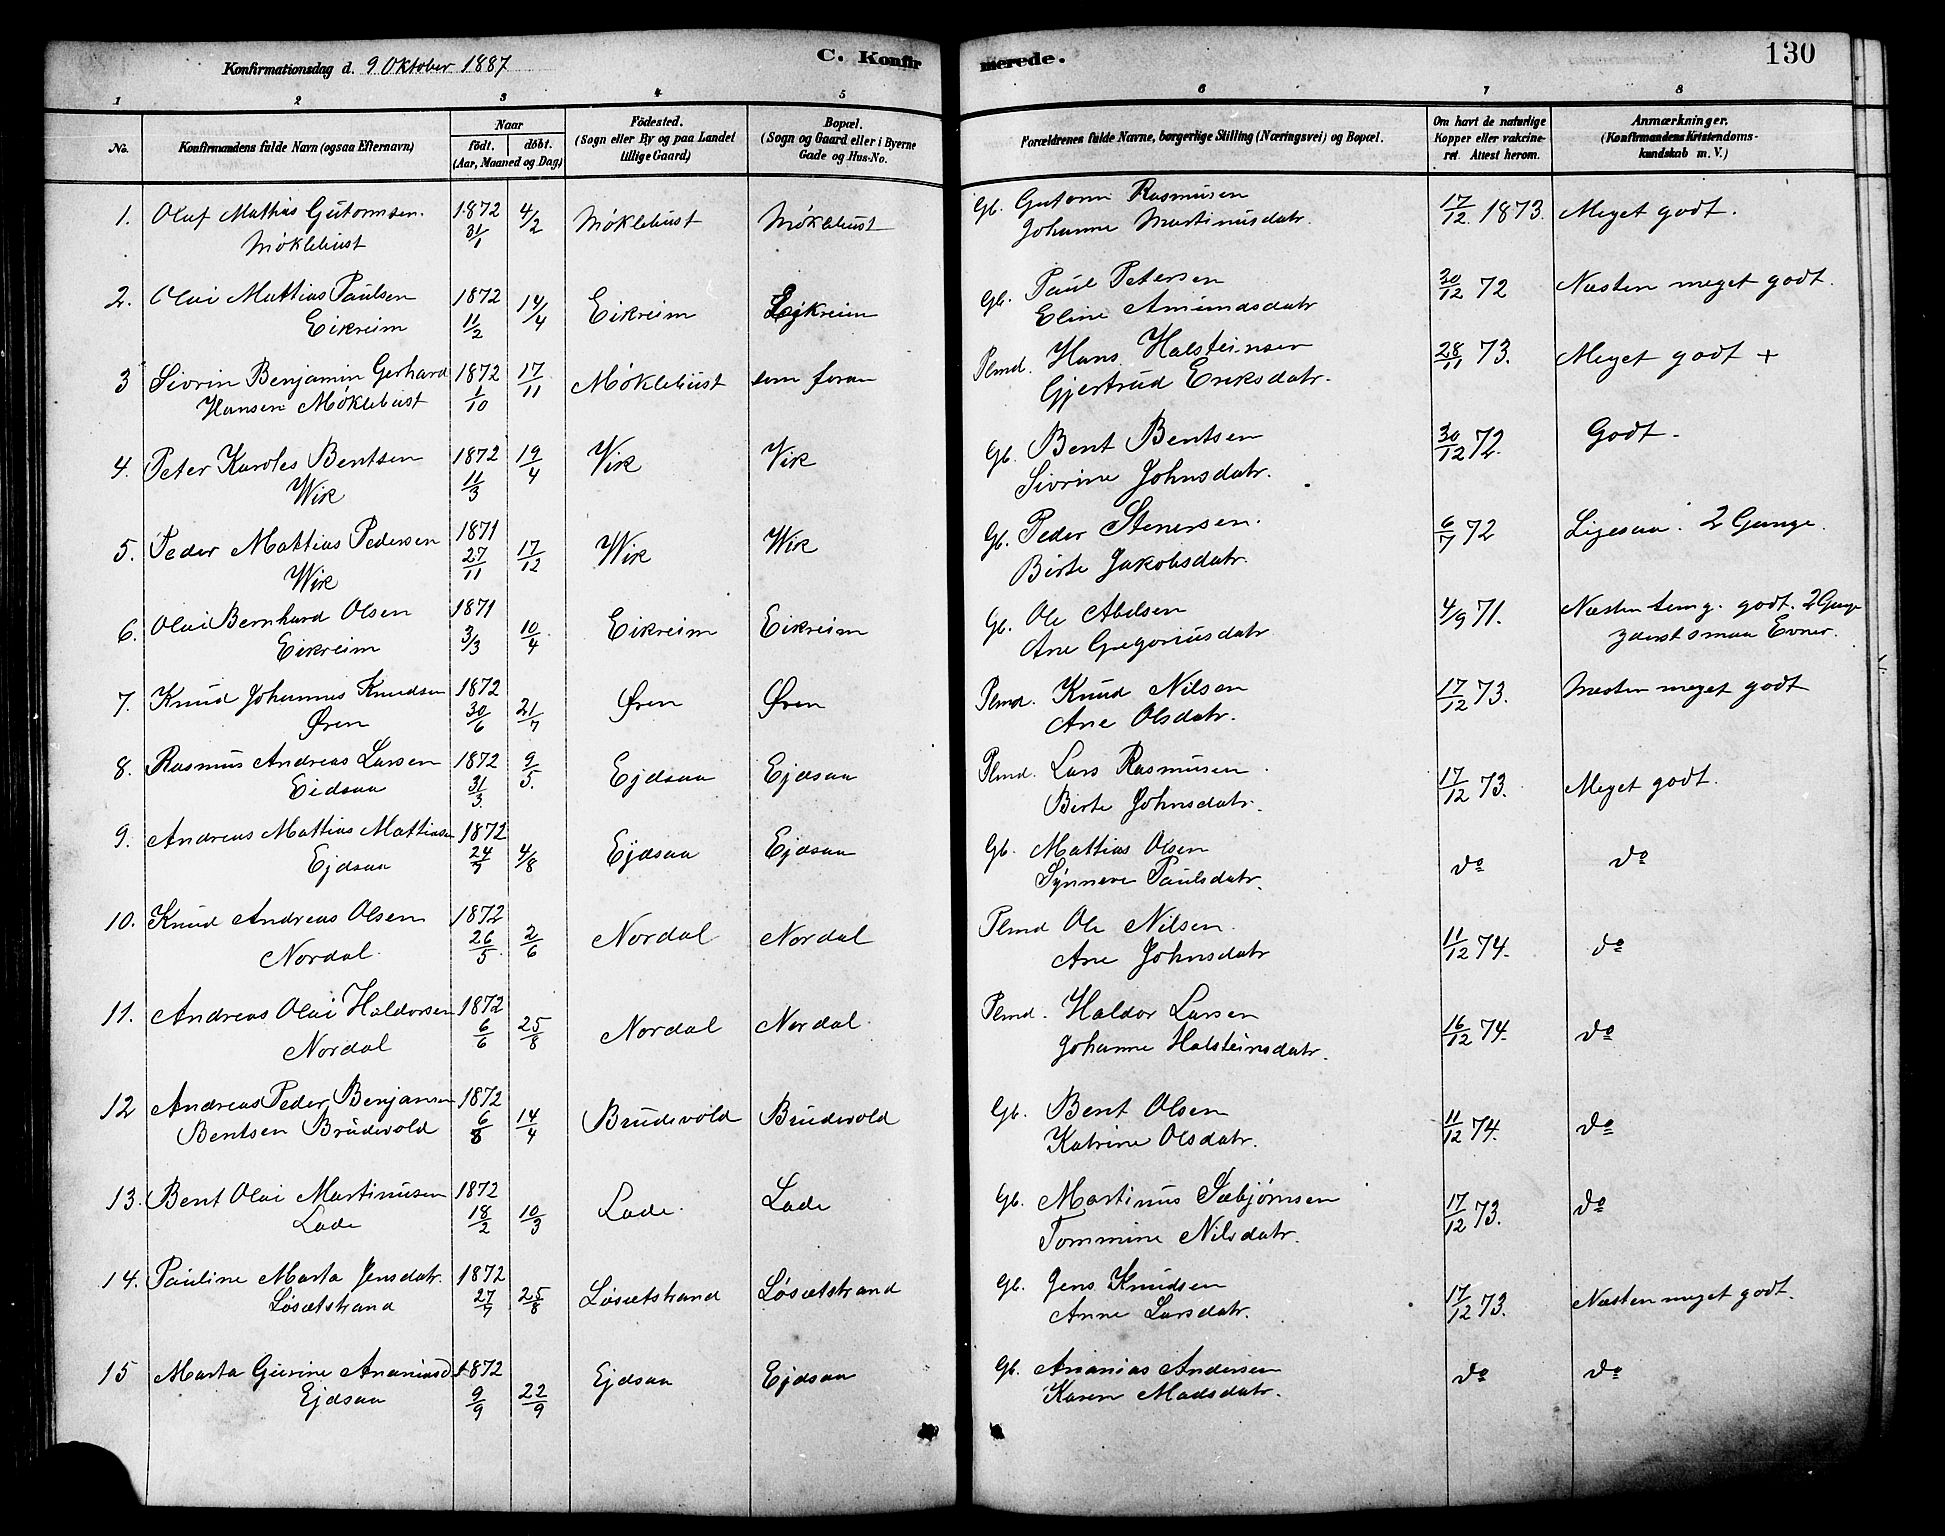 Konfirmationsdag d. 9 Oktober 1887
C. Konfirmerede.
130
1 2 3 4 5 6 7 8
No.
Konfirmandens fulde Navn (ogsaa Efternavn)
Naar
födt. döbt.
(Aar, Maaned og Dag)
Födested.
(Sogn eller By og paa Landet
tillige Gaard)
Bopæl.
(Sogn og Gaard eller i Byerne
Gade og Hus-No.
Forældrenes fulde Navne, borgerlige Stilling (Næringsvei) og Bopæl.
Om havt de naturlige
Kopper eller vakcine-
ret. Attest herom.
Anmærkninger.
(Konfirmandens Kristendoms-
kundskab m. V.)
1. Olaf Mathias Gutormsen 1872 4/2 Möklebust Möklebust Gb. Gutorm Rasmusen 17/12 1873. Meget godt.
Möklebust 31/1 Johanne Martinusdatr.
2. Olai Mattias Paulsen 1872 14/4 Eikreim Ejkreim Gb. Paul Petersen 30/12 72 Næsten meget godt.
Eikreim 11/2 Eline Amundsdatr
3 Sivrin Benjamin Gerhard 1872 17/11 Möklebust som foran Plmd. Hans Halsteinsen 28/11 73. Meget godt +
Hansen Möklebust 1/10 Gjertrud Eriksdatr.
4. Peter Karoles Bentsen 1872 19/4 Vik Vik Gb. Bent Bentsen 30/12 72. Godt.
Wik 11/3 Sivrine Johnsdatr.
5. Peder Mattias Pedersen 1871 17/12 Wik Wik Gb. Peder Stenersen. 6/7 72 Ligesaa. 2 Gange.
Wik 27/11 Birte Jakobsdatr.
6. Olai Bernhard Olsen 1871 10/4 Eikreim Eikreim Gb. Ole Abelsen 4/9 71. Næsten temg. godt. 2 Gange
Eikreim 3/3 Ane Gregoriusdatr. yderst smaa Evner.
7. Knud Johannes Knudsen 1872 21/7 Øren Øren Plmd. Knud Nilsen 17/12 73. Næsten meget godt
Øren 30/6 Ane Olsdatr.
8. Rasmus Andreas Larsen 1872 9/5. Ejdsaa Ejdsaa Plmd. Lars Rasmusen 17/12 73. Meget godt.
Eidsaa 31/3 Birte Johnsdatr.
9. Andreas Mattias Mattiasen 1872 4/8 Ejdsaa Ejdsaa Gb. Mattias Olsen do do
Ejdsaa 24/7 Synneve Paulsdatr.
10. Knud Andreas Olsen 1872 2/6 Nordal Nordal Plmd Ole Nilsen. 11/12 74. do
Nordal. 26/5 Ane Johnsdatr
11. Andreas Olai Haldorsen 1872 25/8 Nordal Nordal. Plmd. Haldor Larsen 16/12 74. do
Nordal 6/6 Johanne Halsteinsdatr.
12 Andreas Peder Benjamin 1872 14/4 Brudevold Brudevold Gb. Bent Olsen 11/12 74. do
Bentsen Brudevold 6/3 Katrine Olsdatr.
13. Bent Olai Martinusen 1872 10/3 Lade. Lade Gb. Martinus Sæbjörnsen 17/12 73. do
Lade 18/2 Tommine Nilsdatr.
14. Pauline Marta Jensdatr. 1872 25/8 Løsætstrand Løsætstrand Gb. Jens Knudsen 17/12 73. Næsten meget godt.
Løsætstrand 27/7 Anne Larsdatr.
15 Marta Gurine Ananiasd. 1872 22/9 Ejdsaa Ejdsaa Gb. Ananias Andersen do do
Ejdsaa 9/9 Karen Madsdatr.